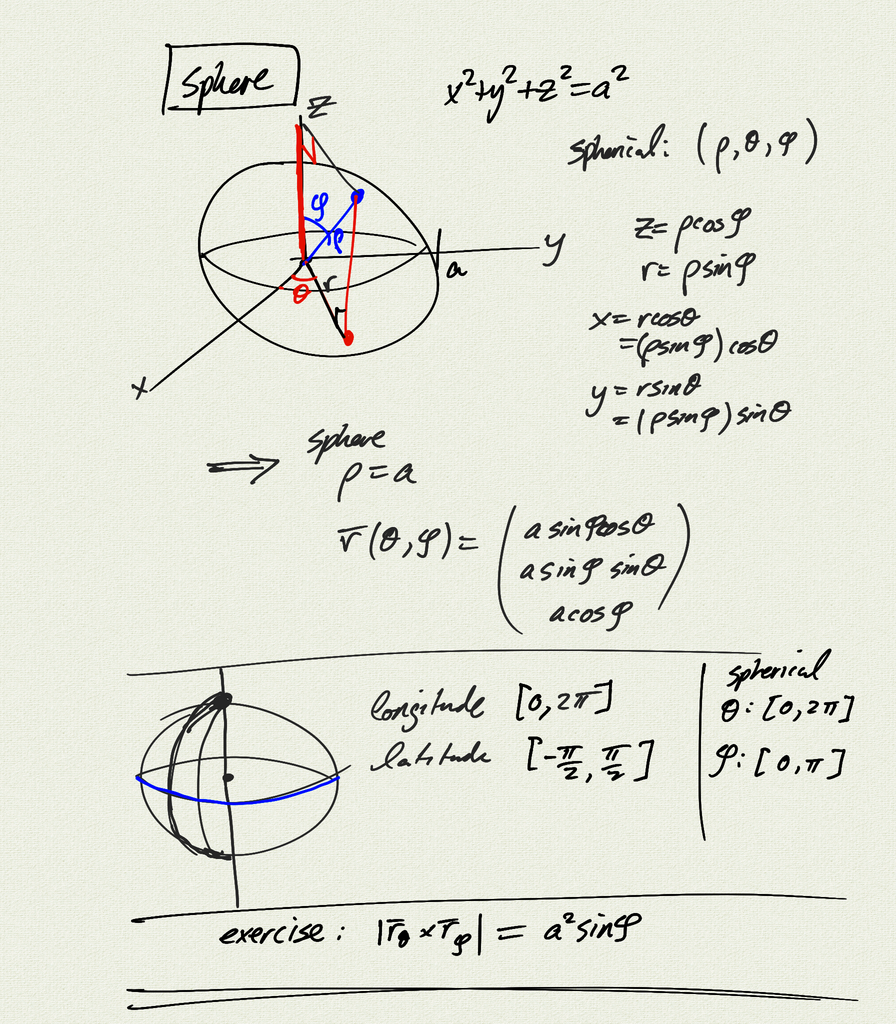 sphere
x²+y²+z²=a²
z
spherical: (ρ, θ, φ)
φ
ρ
y
a
r
θ
r
x
z=ρcosφ
r=ρsinφ
x=rcosθ
=(ρsinφ)cosθ
y=rsinθ
=(ρsinφ)sinθ
⟹ sphere
ρ=a
r̄(θ,φ)= (a sinφcosθ
a sinφ sinθ
a cosφ)
longitude [0, 2π]
latitude [-π/2, π/2]
spherical
θ: [0, 2π]
φ: [0, π]
exercise: |r̄_θ × r̄_φ| = a² sinφ